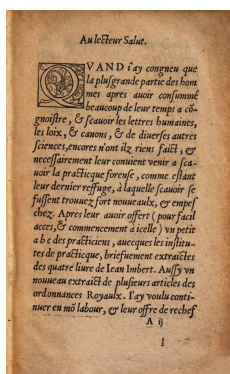 Au lecteur Salut.
QVAND i'ay congneu que
la plusgrande partie des hom
mes apres auoir consummé
beaucoup de leur temps a cõ-
gnoistre, & scauoir les lettres humaines,
les loix, & canons, & de diuerses autres
sciences, encores n'ont ilz riens faict, &
necessairement leur conuient venir a sca-
uoir la practicque forense, comme estant
leur dernier reffuge, à laquelle scauoir se
fussent trouuez fort nouueaulx, & empes
chez. Apres leur auoir offert (pour facil
acces, & commencement a icelle) vn petit
a b c des practiciens, auecques les institu-
tes de practicque, briefuement extraictes
des quatre liure de Iean Imbert. Aussy vn
nouueau extraict de plusieurs articles des
ordonnances Royaulx. I'ay voulu conti-
nuer en mõ labour, & leur offre de rechef
A ij